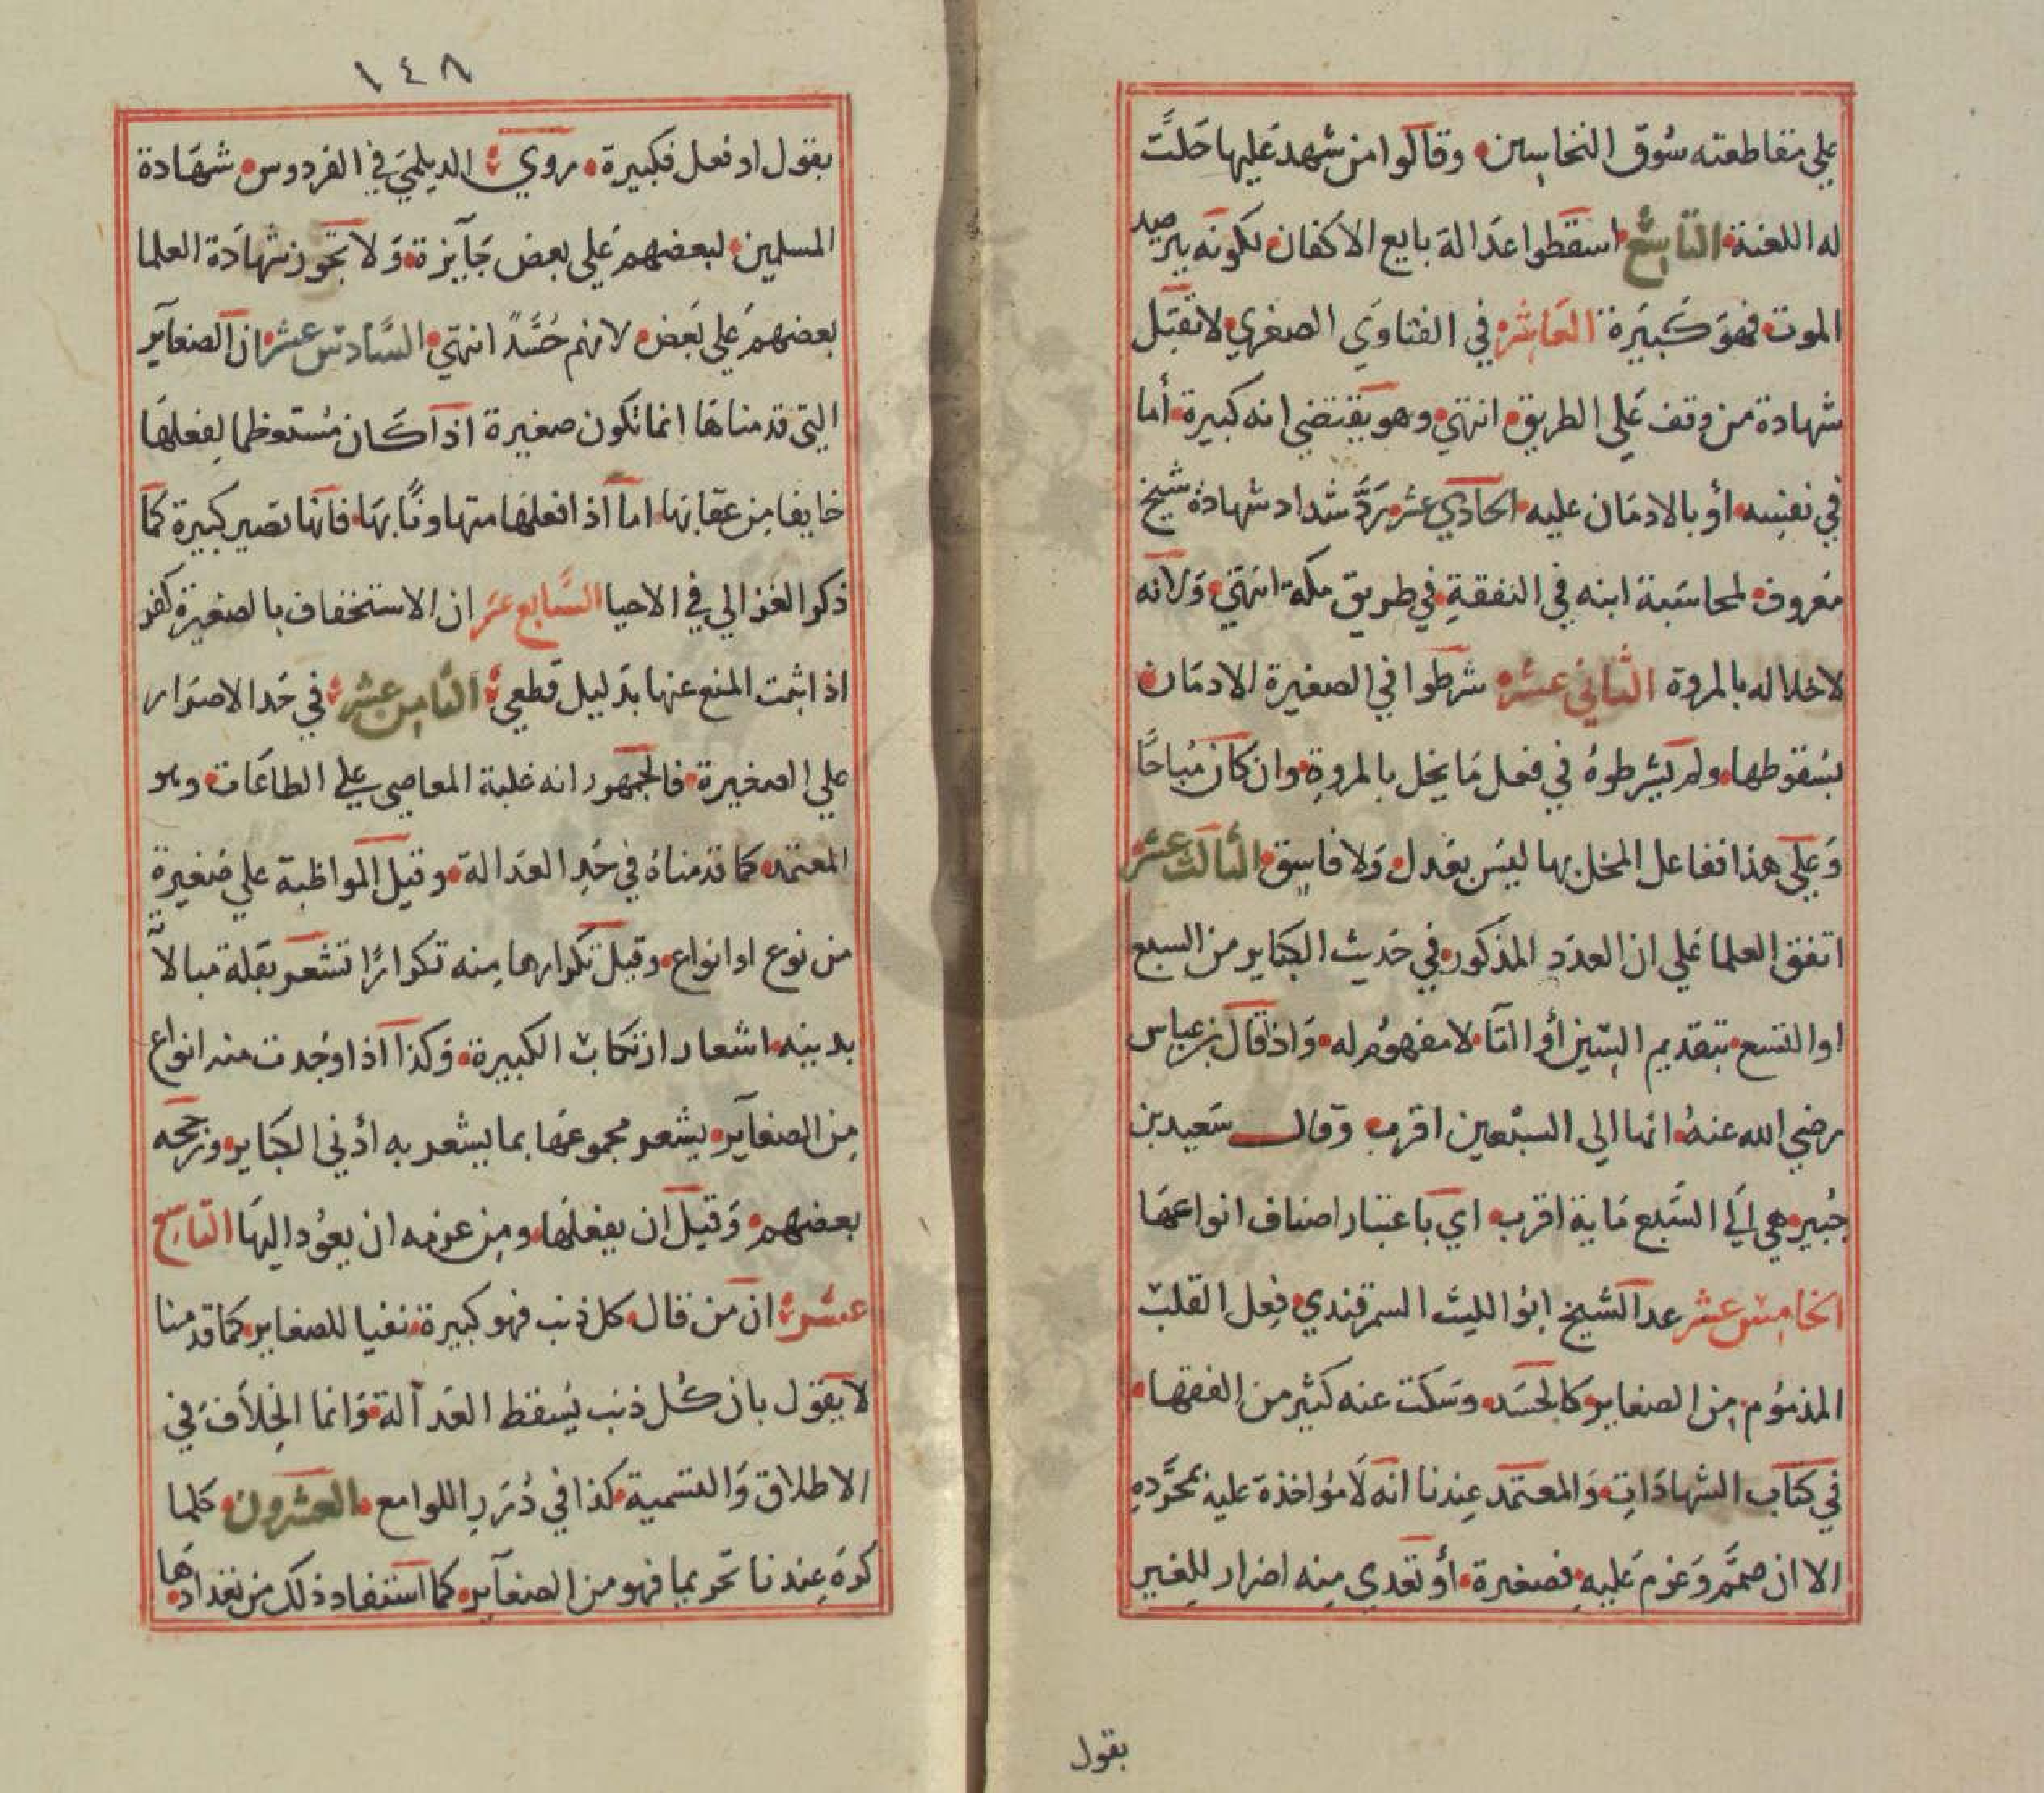 علي مقاطعته سوق النخاسين وقالوا من شهد عليها حلت
له اللعنة التاسع اسقطوا عدالة بايع الاكفان لكونه يرصد
الموت فهو كبيرة العاشر في الفتاوي الصغري لا تقبل
شهادة من وقف علي الطريق انتهي وهو يقتضي انه كبيرة أما
في نفسه أو بالادمان عليه الحادي عشر رد شداد شهادة شيخ
معروف لمحاسبة ابنه في النفقة في طريق مكة انتهي ولانه
لاخلاله بالمروة الثاني عشر شرطوا في الصغيرة الادمان
لسقوطها ولم يشرطوه في فعل ما يخل بالمروة وان كان مباحا
وعلي هذا ففاعل المخل بها ليس بعدل ولا فاسق الثالث عشر
اتفق العلما علي ان العدد المذكور في حديث الكباير من السبع
او التسع بتقديم السين أو التا لا مفهوم له واذ قال بن عباس
رضي الله عنه انها الي السبعين اقرب وقال سعيد بن
جبير هي الي السبع ماية اقرب اي باعتبار اصناف انواعها
الخامس عشر عد الشيخ ابو الليث السمرقندي فعل القلب
المذموم من الصغاير كالحسد وسكت عنه كثير من الفقها
في كتاب الشهادات والمعتمد عندنا انه لا مواخذة عليه بمجرده
الا ان صمم وعزم عليه فصغيرة أو تعدي منه اضرار للغير
بقول
١٤٨
بقول او فعل فكبيرة روي الديلمي في الفردوس شهادة
المسلمين لبعضهم علي بعض جايزة ولا تجوز شهادة العلما
بعضهم علي بعض لانهم حسد انتهي السادس عشر ان الصغاير
التي قدمناها انما تكون صغيرة اذا كان مستعظما لفعلها
خايفا من عقابها اما اذا فعلها متهاونا بها فانها تصير كبيرة كما
ذكر الغزالي في الاحيا السابع عشر ان الاستخفاف بالصغيرة كفر
اذا ثبت المنع عنها بدليل قطعي الثامن عشر في حد الاصرار
علي الصغيرة فالجمهور انه غلبة المعاصي علي الطاعات وهو
المعتمد كما قدمناه في حد العدالة وقيل المواظبة علي صغيرة
من نوع او انواع وقيل تكرارها منه تكرارا تشعر بقلة مبالاة
بدينه اشعار ارتكاب الكبيرة وكذا اذا وجدت منه انواع
من الصغاير يشعر مجموعها بما يشعر به أدني الكباير ورجحه
بعضهم وقيل ان يفعلها ومن عزمه ان يعود اليها التاسع
عشر ان من قال كل ذنب فهو كبيرة نفيا للصغاير كما قدمنا
لا يقول بان كل ذنب يسقط العدالة وانما الخلاف في
الاطلاق والتسمية كذا في درر اللوامع العشرون كلما
كره عندنا تحريما فهو من الصغاير كما استفاد ذلك من تعدادها